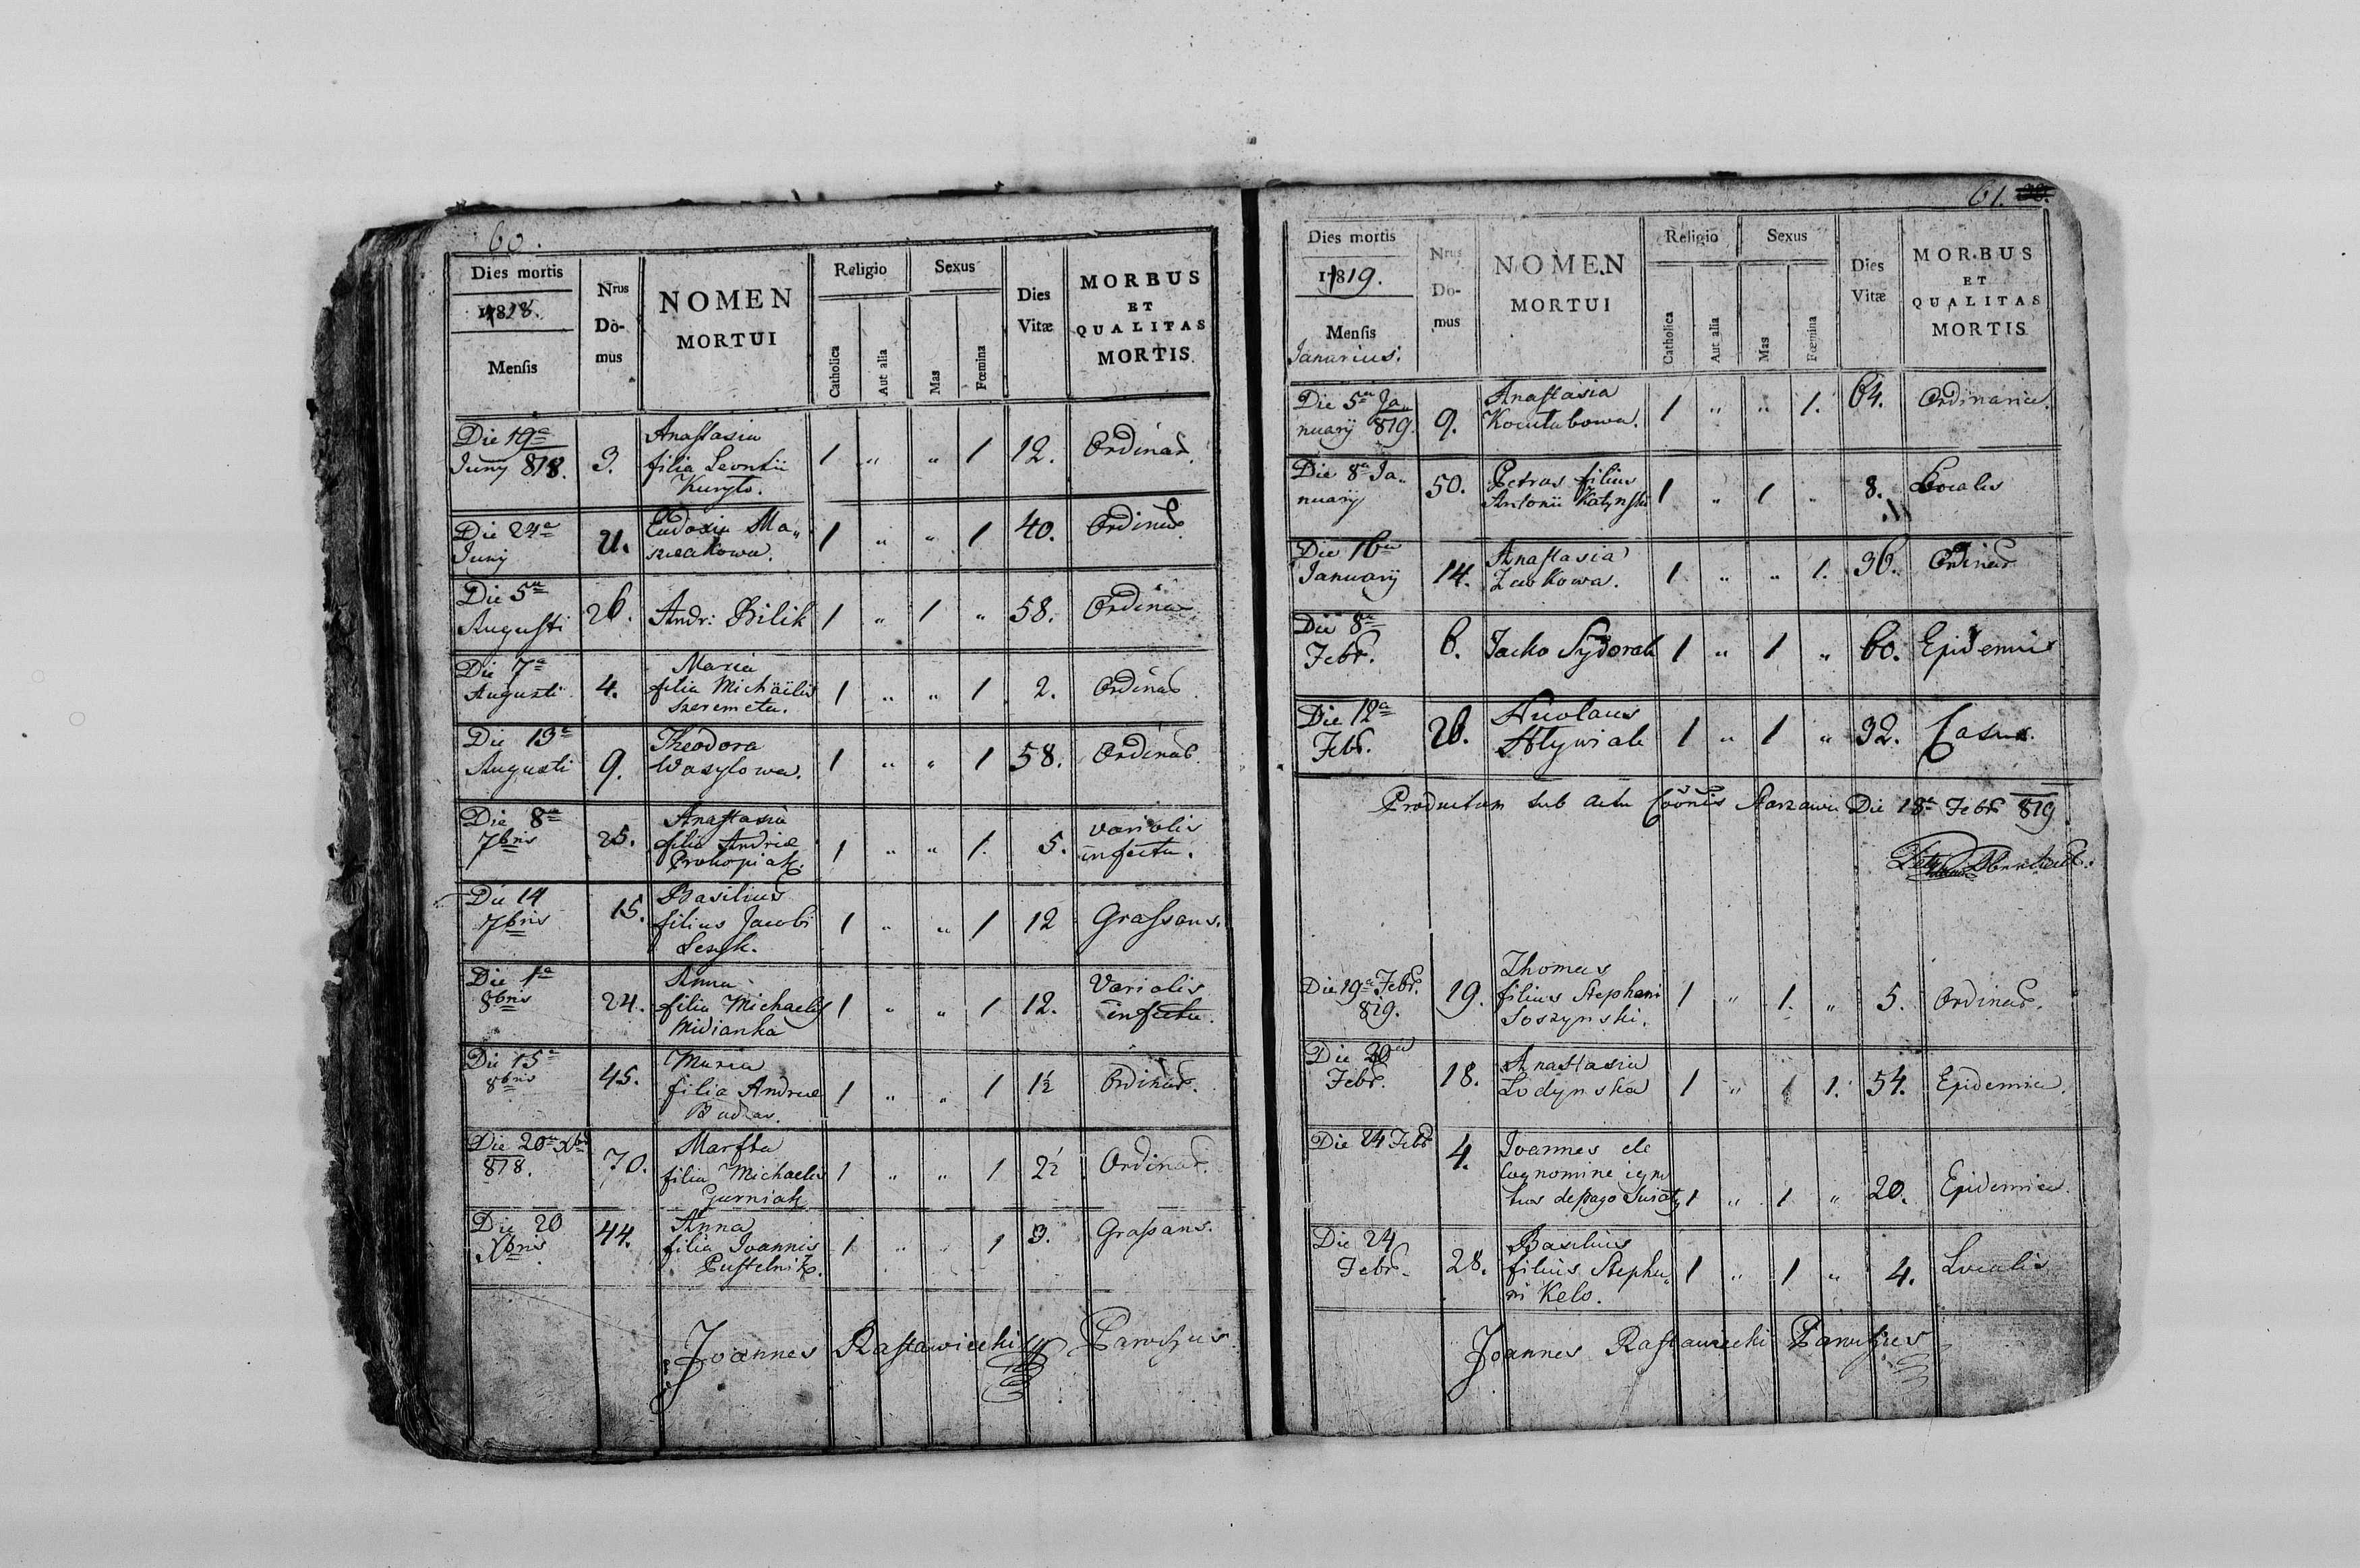 60.
Dies mortis
1818.
Mensis
Nrus
Do-
mus
NOMEN
MORTUI
Religio
Catholica
Aut alia
Sexus
Mas
Fœmina
Dies
Vitæ
MORBUS
ET
QUALITAS
MORTIS
Die 19a
Juny 818. 3. Anastasia
filia Leontii
Kuryło. 1 " " 1 12. Ordinar.
Die 24a
Juny 21. Eudoxia Ma„
szczakowa. 1 " " 1 40. Ordinar.
Die 5ta
Augusti 26. Andr: Bilik 1 " 1 " 58. Ordinar.
Die 7a
Augusti 4. Maria
filia Michäilis
Szeremeta. 1 " " 1 2. Ordinar.
Die 13a
Augusti 9. Theodora
Wasylowa. 1 " " 1 58. Ordinar.
Die 8va
7bris 25. Anastasia
filia Andreæ
Prokopiak. 1 " " 1. 5. Variolis
infecta.
Die 14
7bris 15. Basilius
filius Jacobi
1 " " 1 12 Grassans.
Die 1a
8bris 24. Anna
filia Michaelis
Midianka 1 " " 1 12. Variolis
infecta.
Die 15a
8bris 45. Maria
filia Andreæ
1 " " 1 1½ Ordinar.
Die 20a Xbr
818. 70. Martha
filia Michaelis
Gurniak 1 " " 1 2½ Ordinar.
Die 20
Xbris. 44. Anna
filia Joannis
Pustelnik. 1 " 1 3. Grassans.
Joannes Rastawiecki Parochus
61.
Dies mortis
1819.
Mensis
Januarius.
Nrus
Do-
mus
NOMEN
MORTUI
Religio
Catholica
Aut alia
Sexus
Mas
Fœmina
Dies
Vitæ
MORBUS
ET
QUALITAS
MORTIS
Die 5ta Ja„
nuarij 819. 9. Anastasia
1 " " 1. 64. Ordinaria.
Die 8a Ja„
nuarij 50. Petrus filius
Antonii Katynski 1 " 1 " 8. Localis
Die 16ta
Januarij 14. Anastasia
1 " " 1. 36. Ordinar
Die 8va
Febr. 6. Jacko Sydorak 1 " 1 " 60. Epidemis
Die 12a
Febr. 26. Nicolaus
Hlywiak 1 " 1 " 32. Casus.
Productum sub actu Coonis Starzawie Die 18a Febr 819
Die 19a Febr.
819. 19. Thomas
filius Stephani
Soszynski. 1 " 1. " 5. Ordinar.
Die 20a
Febr. 18. Anastasia
Lodynska 1 " 1 1. 54. Epidemia.
Die 24 Febr 4. Joannes de
Cognomine igno
tus de pago 1 " 1 " 20. Epidemia.
Die 24
Febr. 28. Basilius
filius Stepha„
ni Kelo. 1 " 1 " 4. Localis
Joannes Rastawiecki Parochus